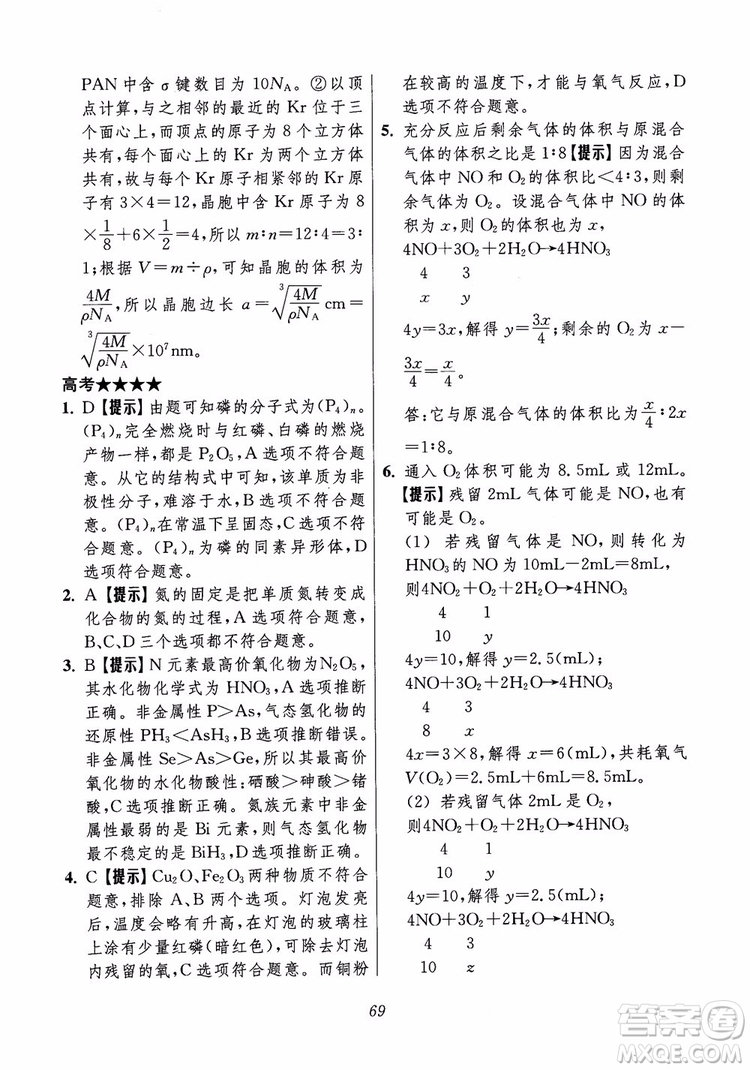 PAN中含σ键数目为10NA。②以顶
点计算，与之相邻的最近的Kr位于三
个面心上，而顶点的原子为8个立方体
共有，每个面心的Kr为两个立方体
共有，故与每个Kr原子相紧邻的Kr原
子有3×4=12，晶胞中含Kr原子为8
×1/8+6×1/2=4，所以m∶n=12∶4=3∶
1；根据V=m÷ρ，可知晶胞的体积为
4M/ρNA，所以晶胞边长a=∛(4M/ρNA)cm=
∛(4M/ρNA)×10⁷nm。
高考★★★★
1. D【提示】由题可知磷的分子式为(P₄)ₙ。
(P₄)ₙ完全燃烧时与红磷、白磷的燃烧
产物一样，都是P₂O₅，A选项不符合题
意。从它的结构式中可知，该单质为非
极性分子，难溶于水，B选项不符合题
意。(P₄)ₙ在常温下呈固态，C选项不符
合题意。(P₄)ₙ为磷的同素异形体，D
选项符合题意。
2. A【提示】氮的固定是把单质氮转变成
化合物的氮的过程，A选项符合题意，
B、C、D三个选项都不符合题意。
3. B【提示】N元素最高价氧化物为N₂O₅，
其水化物化学式为HNO₃，A选项推断
正确。非金属性P>As，气态氢化物的
还原性PH₃<AsH₃，B选项推断错误。
非金属性Se>As>Ge，所以其最高价
氧化物的水化物酸性：硒酸>砷酸>锗
酸，C选项推断正确。氮族元素中非金
属性最弱的是Bi元素，则气态氢化物
最不稳定的是BiH₃，D选项推断正确。
4. C【提示】Cu₂O、Fe₂O₃两种物质不符合
题意，排除A、B两个选项。灯泡发亮
后，温度会略有升高，在灯泡的玻璃柱
上涂有少量红磷(暗红色)，可除去灯泡
内残留的氧，C选项符合题意。而铜粉
在较高的温度下，才能与氧气反应，D
选项不符合题意。
5. 充分反应后剩余气体的体积与原混合
气体的体积之比是1∶8【提示】因为混合
气体中NO和O₂的体积比<4∶3，则剩
余气体为O₂。设混合气体中NO的体
积为x，则O₂的体积也为x，
4NO+3O₂+2H₂O→4HNO₃
4 3
x y
4y=3x，解得y=3x/4；剩余的O₂为x－
3x/4=x/4。
答：它与原混合气体的体积比为x/4∶2x
=1∶8。
6. 通入O₂体积可能为8.5mL或12mL。
【提示】残留2mL气体可能是NO，也有
可能是O₂。
(1) 若残留气体是NO，则转化为
HNO₃的NO为10mL－2mL=8mL，
则4NO+O₂+2H₂O→4HNO₂
4 1
10 y
4y=10，解得y=2.5(mL)；
4NO+3O₂+2H₂O→4HNO₃
4 3
8 x
4x=3×8，解得x=6(mL)，共耗氧气
V(O₂)=2.5mL+6mL=8.5mL。
(2) 若残留气体2mL是O₂，
则4NO+O₂+2H₂O→4HNO₃
4 1
10 y
4y=10，解得y=2.5(mL)；
4NO+3O₂+2H₂O→4HNO₃
4 3
10 z
69
答案圈
MXQE.COM